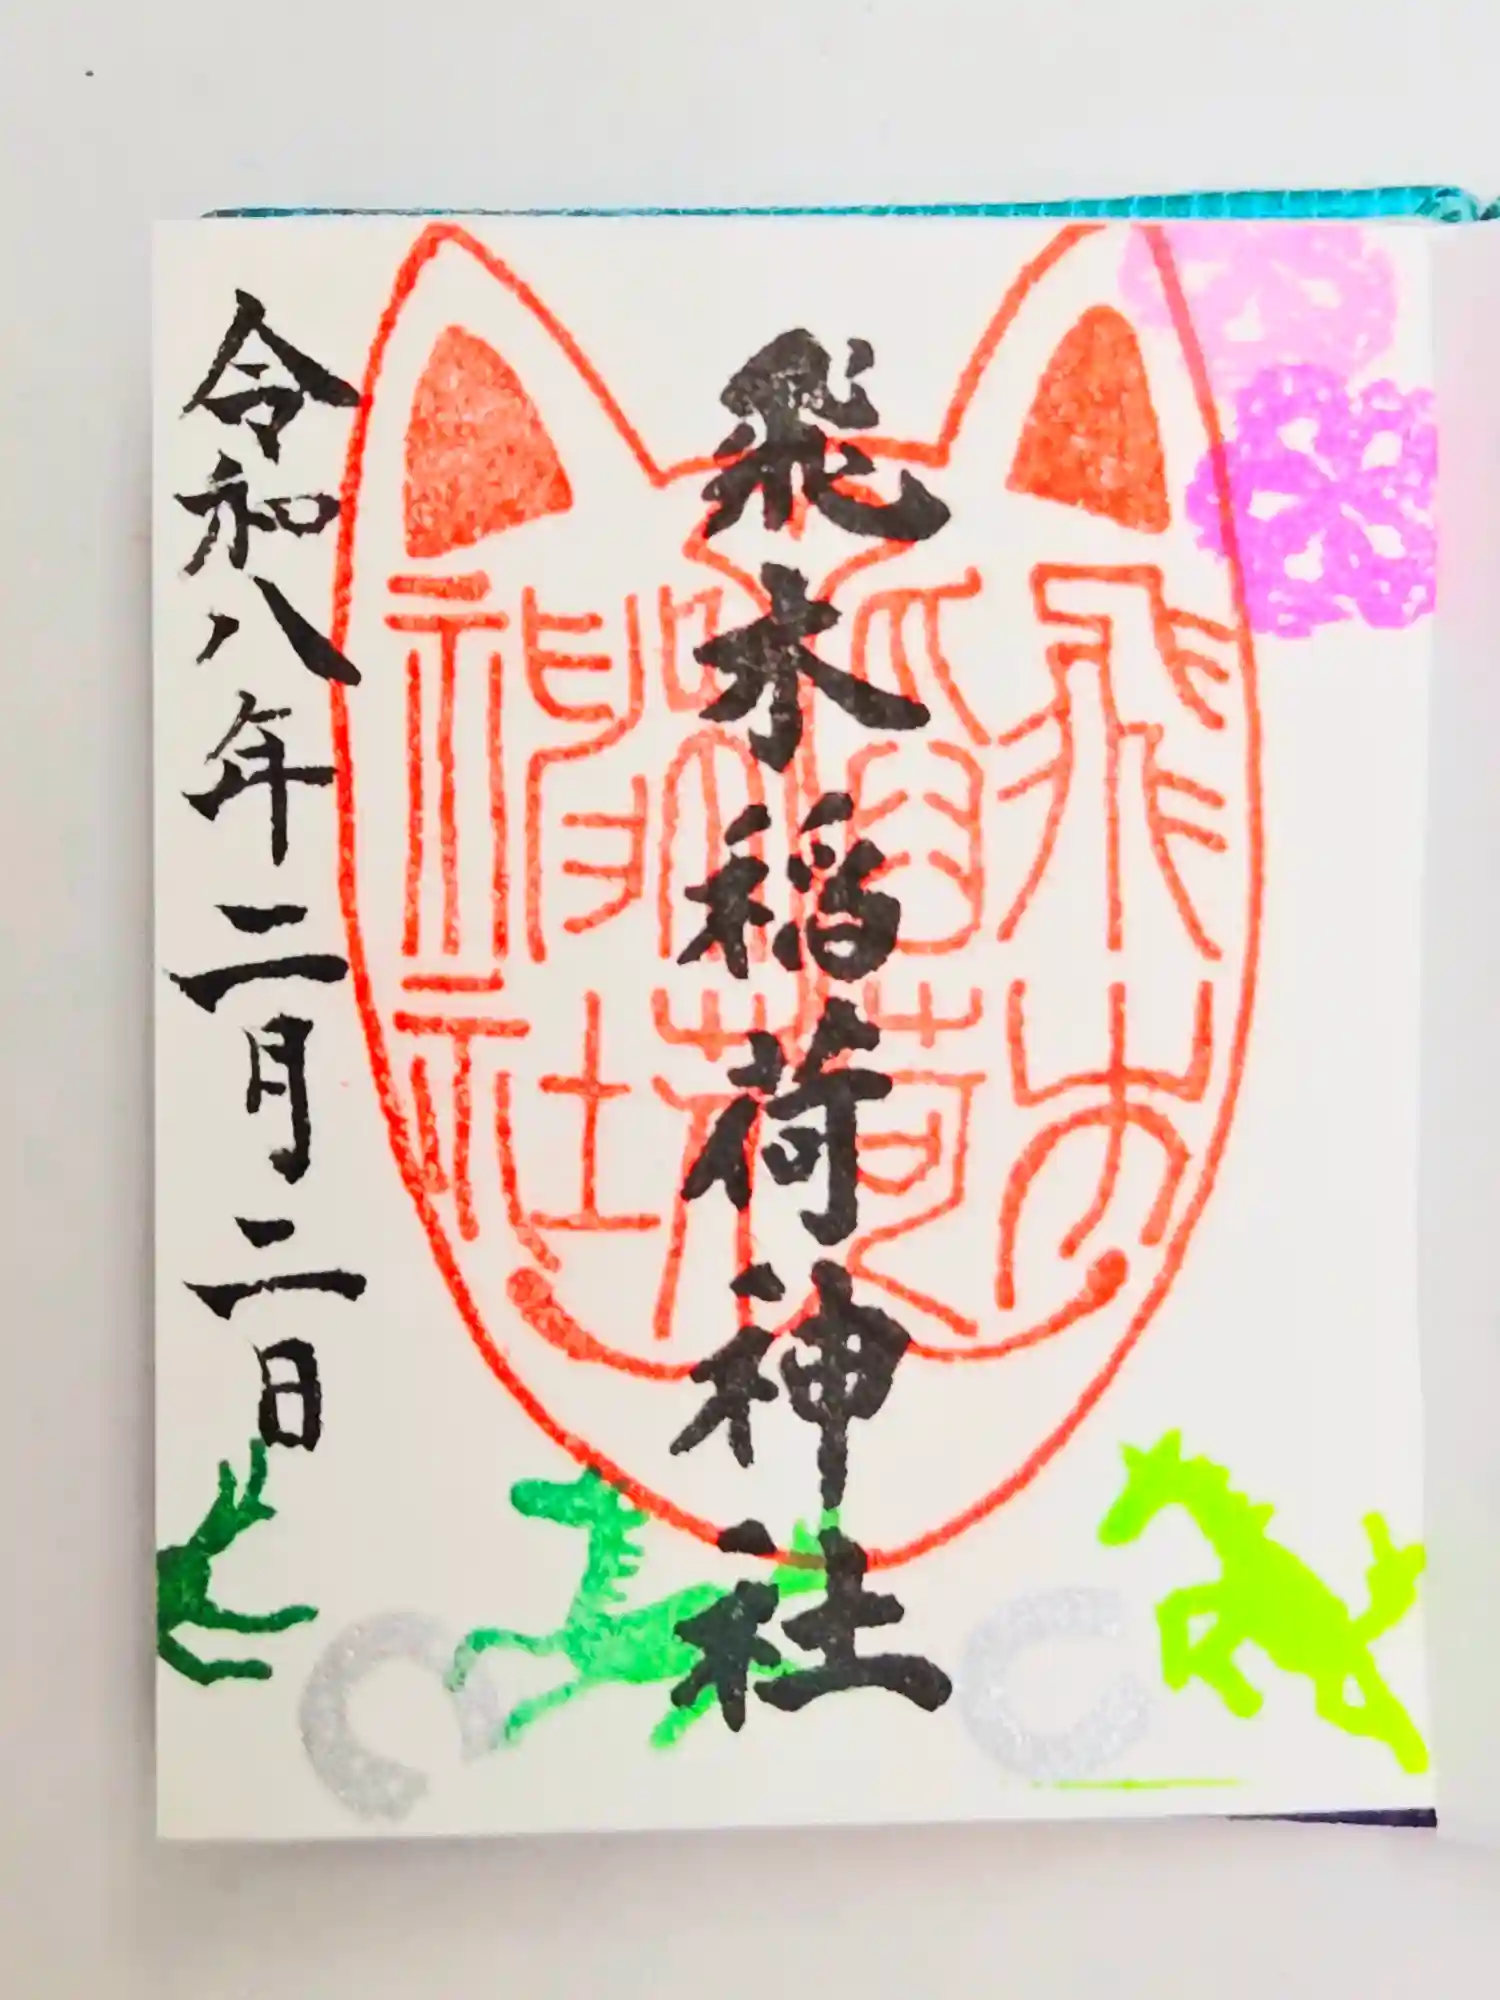 飛木稲荷神社
飛木
稲荷
神社
令和八年二月二日